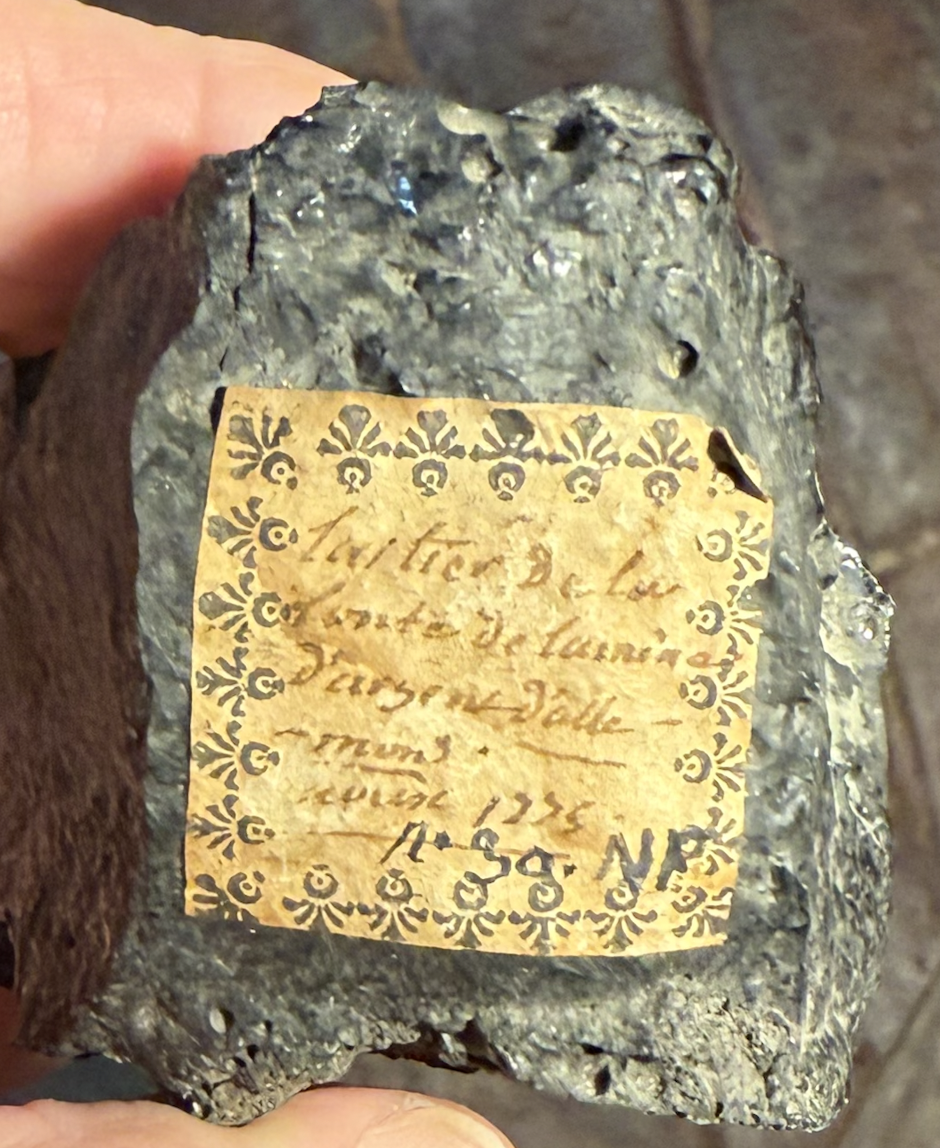 laitier de la
fonte de lamine
d'argent d'alle-
-mons.
1776
n° 30. NP